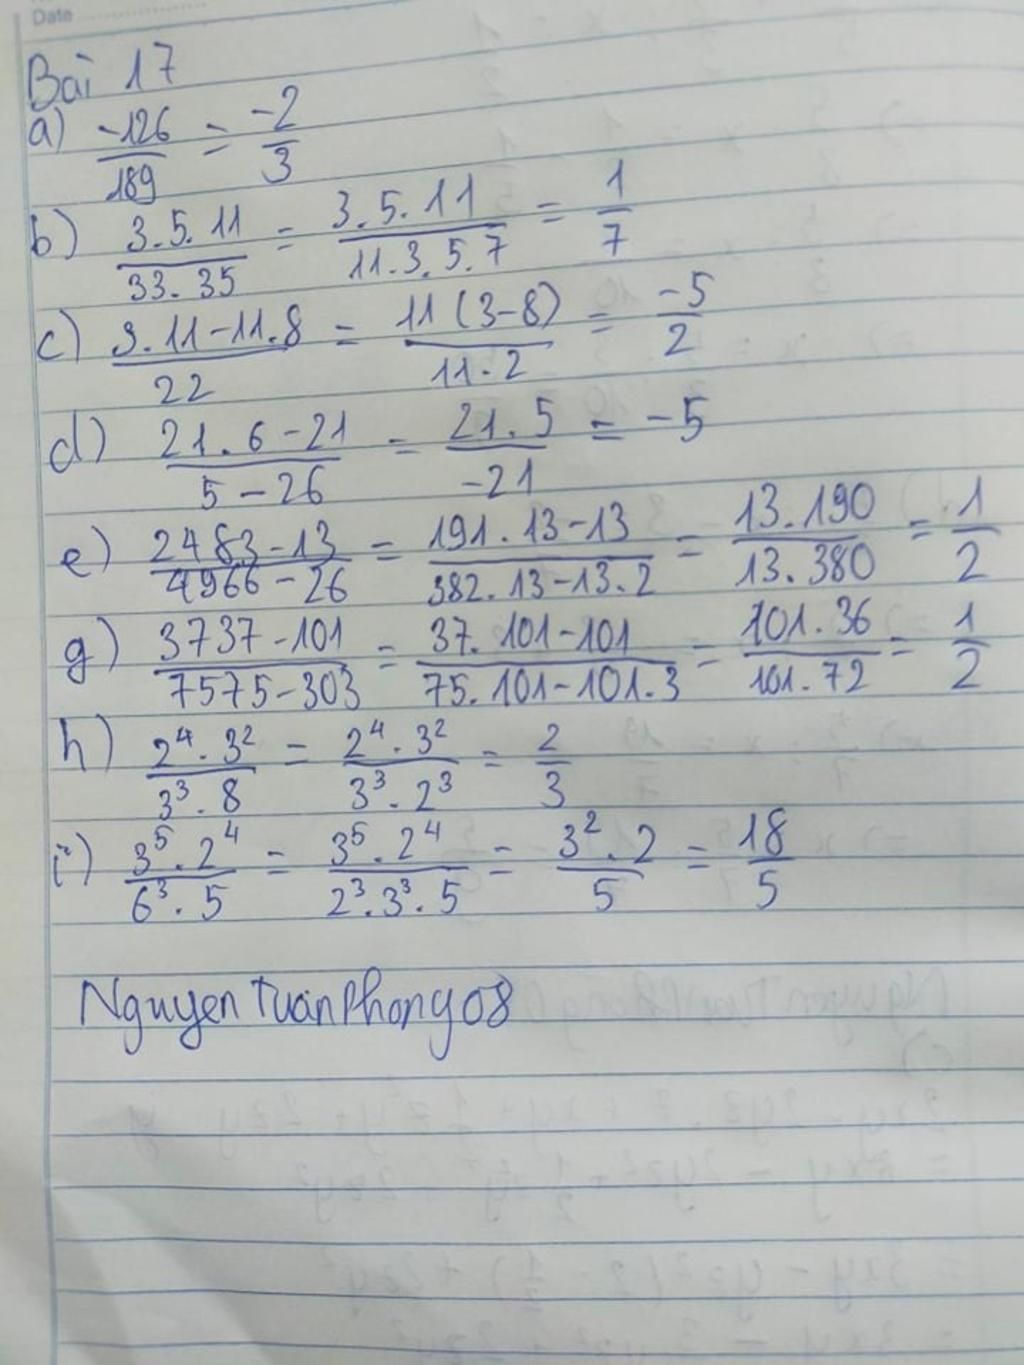 Date
Bài 17
a) -126/189 = -2/3
b) 3.5.11/33.35 = 3.5.11/11.3.5.7 = 1/7
c) 3.11-11.8/22 = 11(3-8)/11.2 = -5/2
d) 21.6-21/5-26 = 21.5/-21 = -5
e) 2483-13/4966-26 = 191.13-13/382.13-13.2 = 13.190/13.380 = 1/2
g) 3737-101/7575-303 = 37.101-101/75.101-101.3 = 101.36/101.72 = 1/2
h) 2⁴.3²/3³.8 = 2⁴.3²/3³.2³ = 2/3
i) 3⁵.2⁴/6³.5 = 3⁵.2⁴/2³.3³.5 = 3².2/5 = 18/5
NguyenTuanPhong08